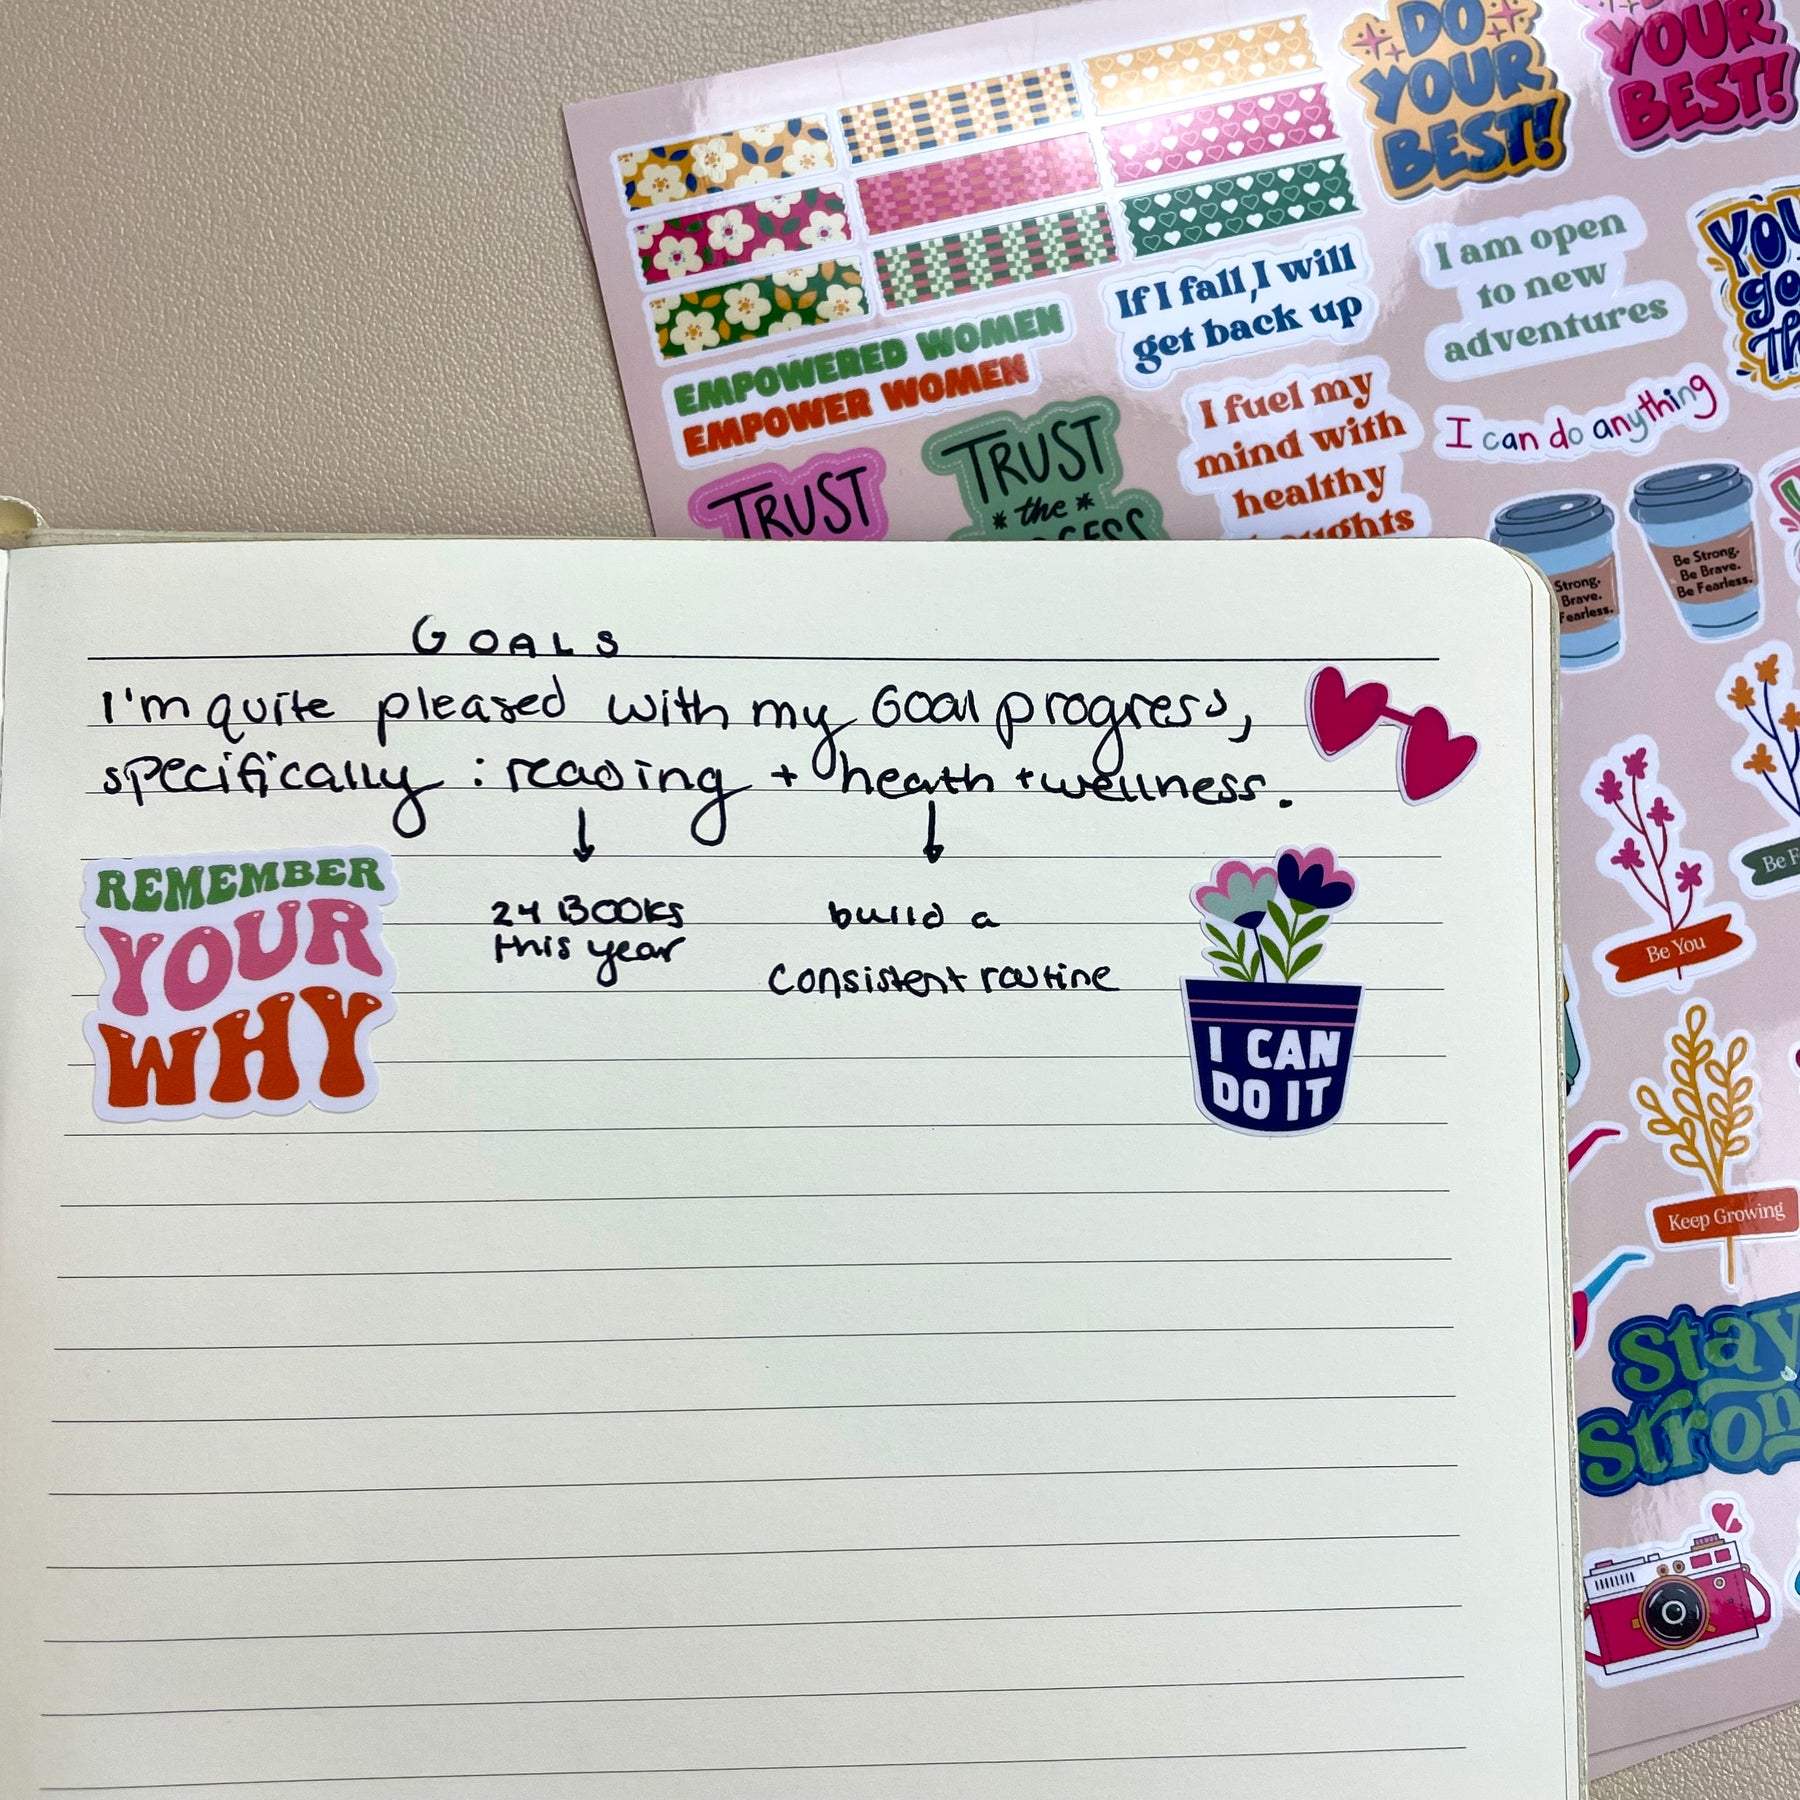 DO
YOUR
BEST!
YOUR
BEST!
I am open
to new
adventures
If I fall, I will
get back up
EMPOWERED WOMEN
EMPOWER WOMEN
I fuel my
mind with
healthy
I can do anything
TRUST
TRUST
the
Strong.
Brave.
Be Strong.
Be Brave.
Be Fearless.
GOALS
I'm quite pleased with my Goal progress,
specifically : reading + health + wellness.
24 BOOKS
this year
build a
consistent routine
REMEMBER
YOUR
WHY
I CAN
DO IT
Be You
Keep Growing
Stay